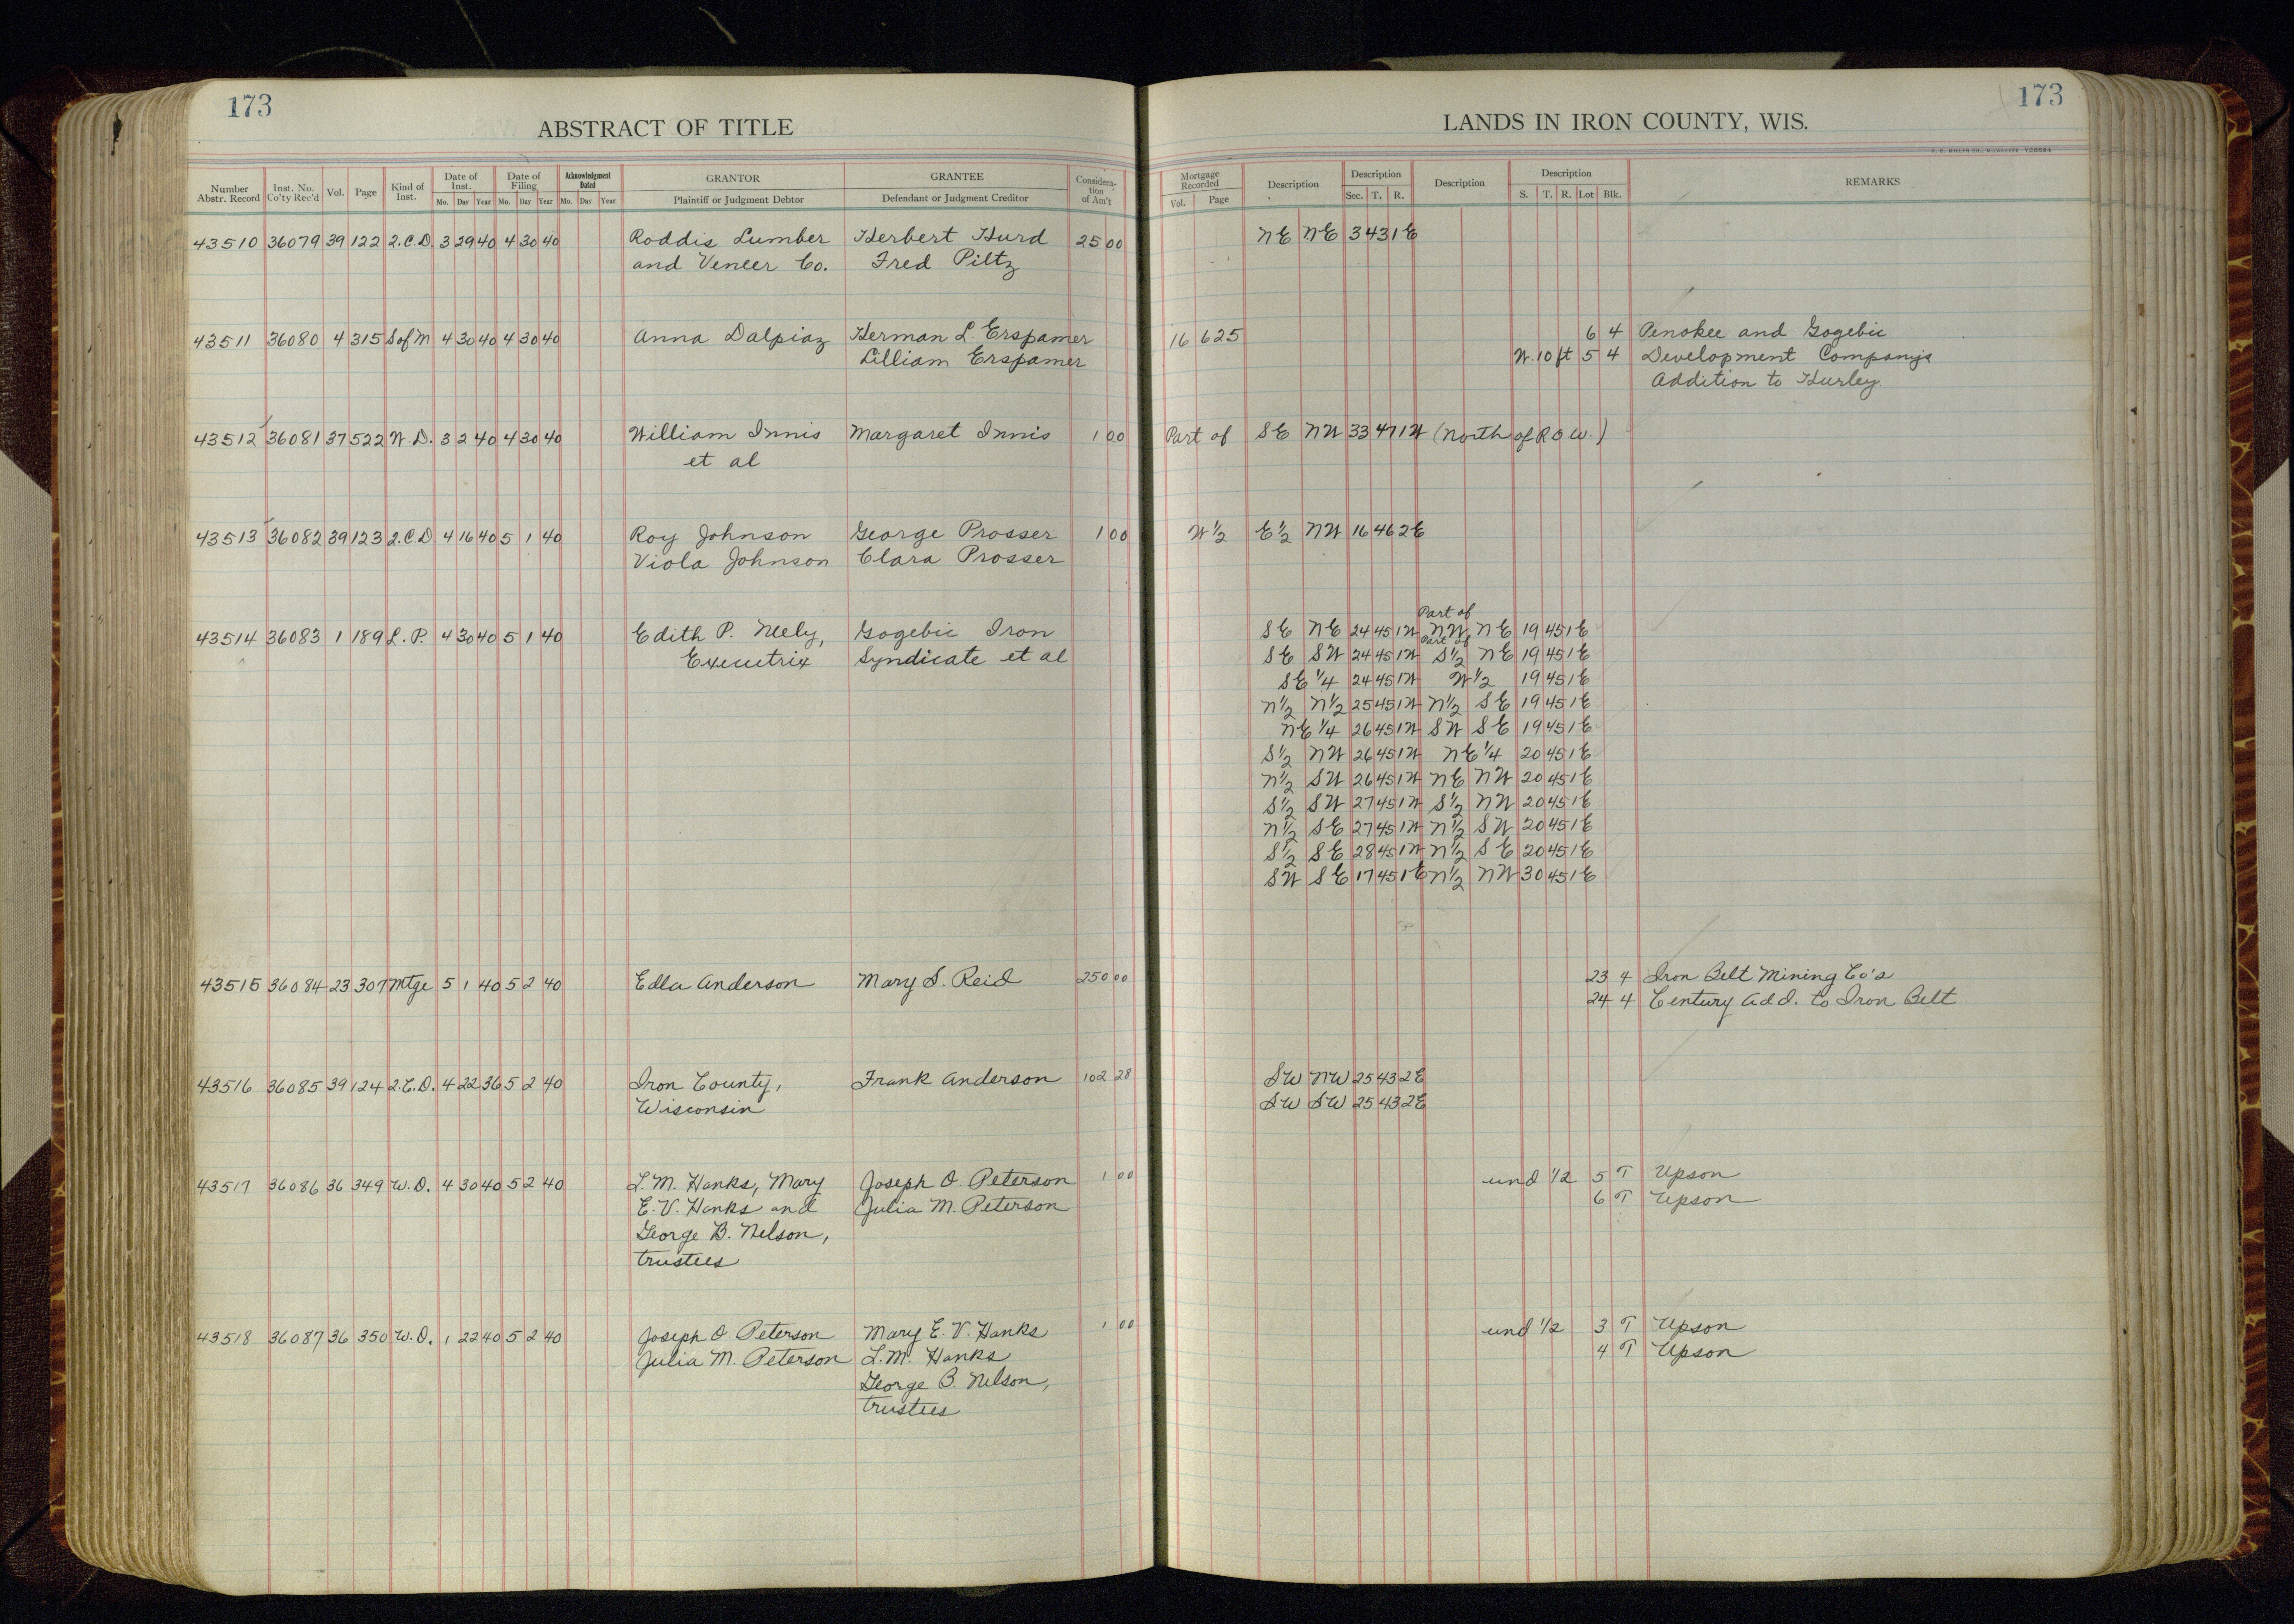 173
ABSTRACT OF TITLE
Number Abstr. Record Inst. No. Co'ty Rec'd Vol. Page Kind of Inst. Date of Inst. Mo. Day Year Date of Filing Mo. Day Year Acknowledgment Dated Mo. Day Year GRANTOR Plaintiff or Judgment Debtor GRANTEE Defendant or Judgment Creditor Consideration of Am't
43510 36079 39 122 2.C.D. 3 29 40 4 30 40 Roddis Lumber Herbert Hurd 25 00
and Veneer Co. Fred Piltz
43511 36080 4 315 S of M 4 30 40 4 30 40 Anna Dalpiaz Herman L Erspamer
Lilliam Erspamer
43512 36081 37 522 W.D. 3 2 40 4 30 40 William Innis Margaret Innis 1 00
et al
43513 36082 39 123 2.C.D 4 16 40 5 1 40 Roy Johnson George Prosser 1 00
Viola Johnson Clara Prosser
43514 36083 1 189 L.P. 4 30 40 5 1 40 Edith P. Mely, Gogebic Iron
Executrix Syndicate et al
43515 36084 23 307 Mtge 5 1 40 5 2 40 Edla Anderson Mary S. Reid 250 00
43516 36085 39 124 2.C.D. 4 22 36 5 2 40 Iron County, Frank Anderson 102 28
Wisconsin
43517 36086 36 349 W.D. 4 30 40 5 2 40 L.M. Hanks, Mary Joseph O. Peterson 1 00
E.V. Hanks and Julia M. Peterson
George B. Nelson,
trustees
43518 36087 36 350 W.D. 1 22 40 5 2 40 Joseph O Peterson Mary E.V. Hanks 1 00
Julia M. Peterson L.M. Hanks
George B. Nelson,
trustees
173
LANDS IN IRON COUNTY, WIS.
H. C. MILLER CO., MILWAUKEE Y28594
Mortgage Recorded Vol. Page Description Description Sec. T. R. Description Description S. T. R. Lot Blk. REMARKS
NE NE 3 43 1E
16 625 6 4 Penokee and Gogebic
W. 10 ft 5 4 Development Company's
Addition to Hurley
Part of SE NW 33 47 1W (North of R O W.)
W 1/2 E 1/2 NW 16 46 2E
Part of
SE NE 24 45 1W NW NE 19 45 1E
Part of
SE SW 24 45 1W S 1/2 NE 19 45 1E
SE 1/4 24 45 1W W 1/2 19 45 1E
N 1/2 N 1/2 25 45 1W N 1/2 SE 19 45 1E
NE 1/4 26 45 1W SW SE 19 45 1E
S 1/2 NW 26 45 1W NE 1/4 20 45 1E
N 1/2 SW 26 45 1W NE NW 20 45 1E
S 1/2 SW 27 45 1W S 1/2 NW 20 45 1E
N 1/2 SE 27 45 1W N 1/2 SW 20 45 1E
S 1/2 SE 28 45 1W N 1/2 SE 20 45 1E
SW SE 17 45 1E N 1/2 NW 30 45 1E
23 4 Iron Belt Mining Co's
24 4 Century Add. to Iron Belt
SW NW 25 43 2E
SW SW 25 43 2E
und 1/2 5 T Upson
6 T Upson
und 1/2 3 T Upson
4 T Upson